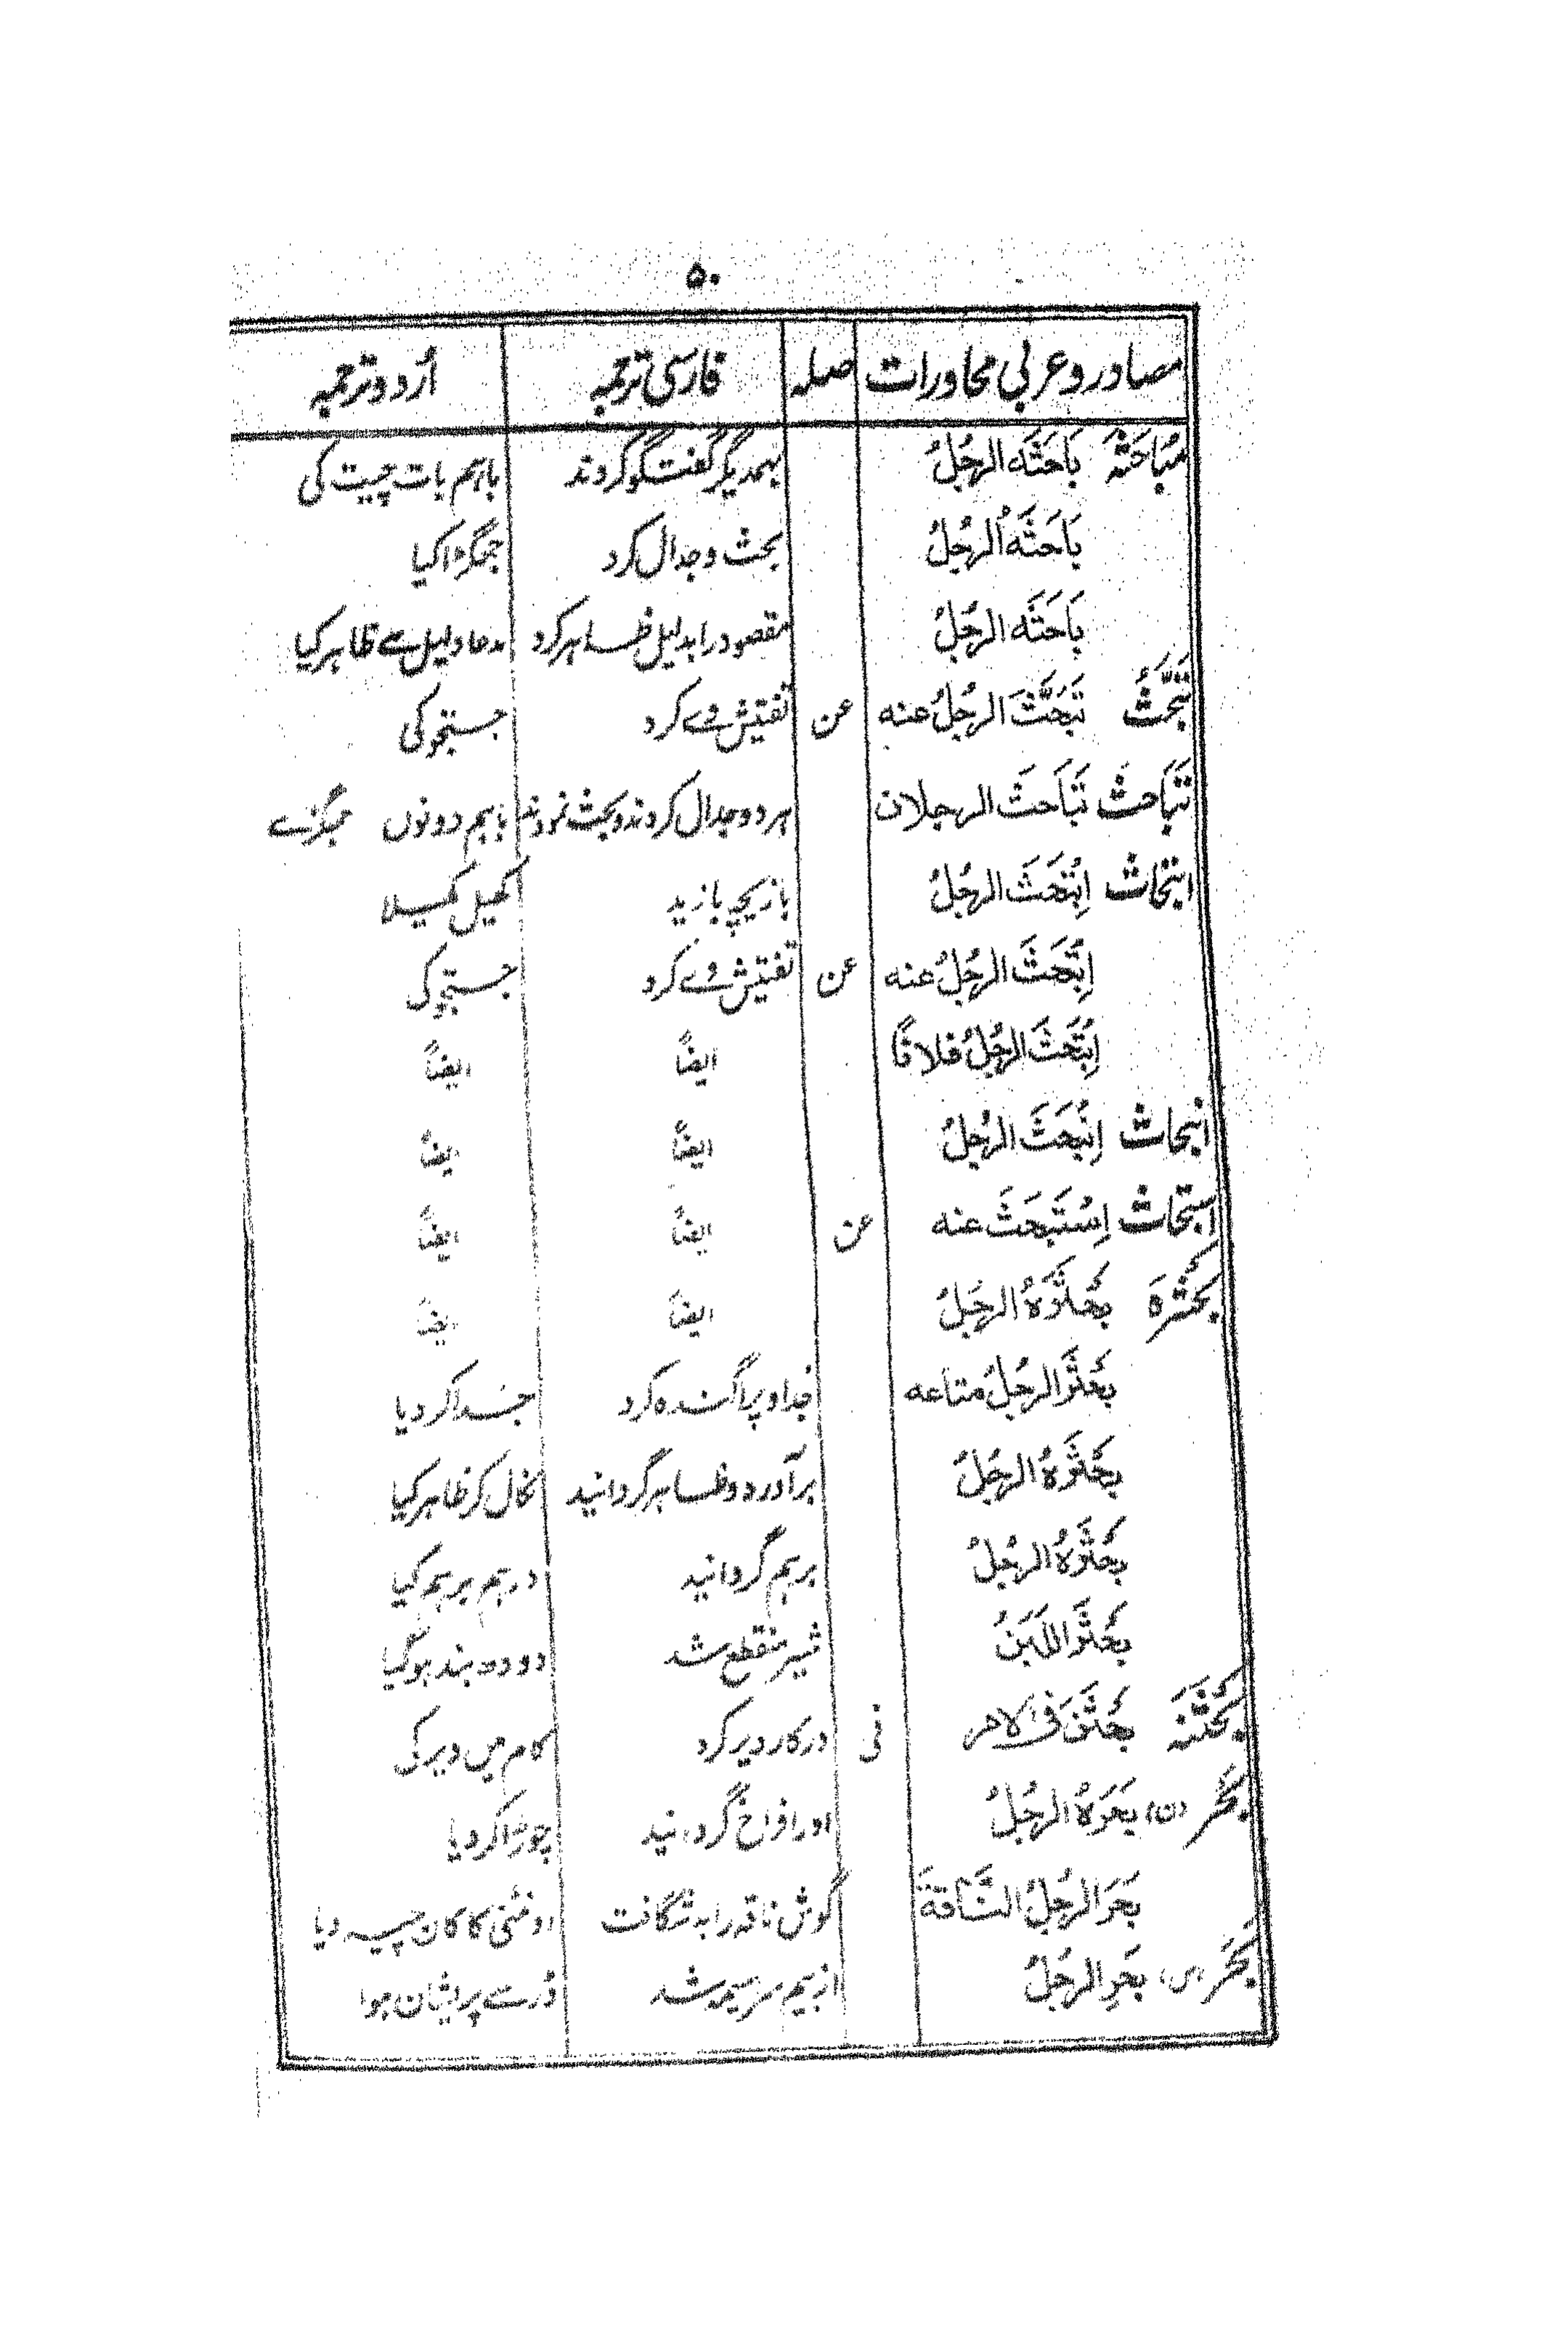 ۵۰
مصادر و عربی محاورات صلہ فارسی ترجمہ اُردو ترجمہ
مُبَاحَثَۃ بَاحَثَہ الرجُلُ بہمدیگر گفتگو کردند باہم بات چیت کی
بَاحَثَہُ الرجُلُ بحث و جدال کرد جھگڑا کیا
بَاحَثَہ الرجُلُ مقصود را بدلیل ظاہر کرد مدعا دلیل سے ظاہر کیا
تَبَحُّثْ تَبَحَّثَ الرجُلُ عنہ عن تفتیش وے کرد جستجو کی
تَبَاحث تَبَاحَثَ الرجلان ہر دو جدال کردند و بحث نمودند باہم دونوں جھگڑے
ابتحاث اِبْتَحَثَ الرجُلُ بازیچہ بازید کھیل کھیلا
اِبْتَحَثَ الرجُلُ عنہ عن تفتیش وے کرد جستجو کی
اِبْتَحَثَ الرجُلُ فلاناً ایضاً ایضاً
انبحاث اِنْبَحَثَ الرجُلُ ایضاً ایضاً
استبحاث اِسْتَبْحَثَ عنہ عن ایضاً ایضاً
بَحْثَرَۃ بَحْثَرَہُ الرجُلُ ایضاً ایضاً
بَحْثَرَ الرجُلُ متاعہ جُدا و پراگندہ کرد جُدا کر دیا
بَحْثَرَہُ الرجُلُ برآورد و ظاہر گردانید نکال کر ظاہر کیا
بَحْثَرَہُ الرجُلُ برہم گردانید درہم برہم کیا
بَحْثَرَ اللَبَنُ شیر منقطع شد دودھ بند ہو گیا
بَحْثَنَہ بَحْثَنَ فی الامر فی درکار دیر کرد کام میں دیر کی
بَحْر (ن) بَحَرَہُ الرجُلُ اورا فراخ گردانید چوڑا کر دیا
بَحَرَ الرجُلُ النَّاقۃَ گوش ناقہ را بشگافت اونٹنی کا کان چیر دیا
بَحَر (س) بَحِرَ الرجُلُ از بیم سراسیمہ شد ڈر سے پریشان ہوا